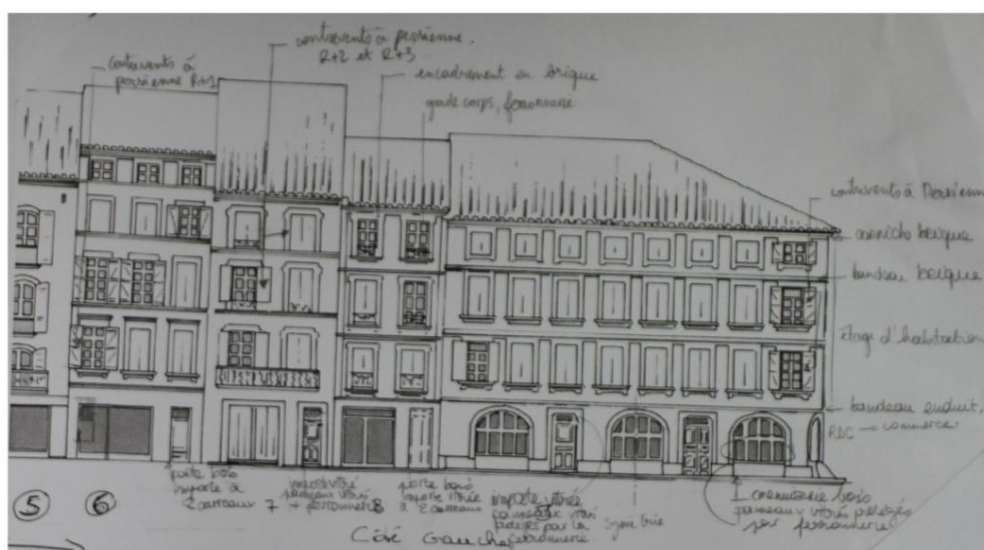 contrevents à persienne.
R+2 et R+3
contrevents à
persienne R+1
encadrement en brique
garde corps, ferronnerie
contrevents à Persienne
corniche brique
bandeau brique
étage d'habitation
bandeau enduit.
RDC → commerce.
porte bois
imposte à
2 carreaux
imposte vitrée
panneaux vitrés
+ ferronnerie
porte bois
imposte vitrée
à 2 carreaux
imposte vitrée
panneaux vitrés
protégés par la
ferronnerie.
symétrie
menuiserie bois
panneaux vitrés protégés
par ferronnerie
5
6
7
8
Côté Gauche